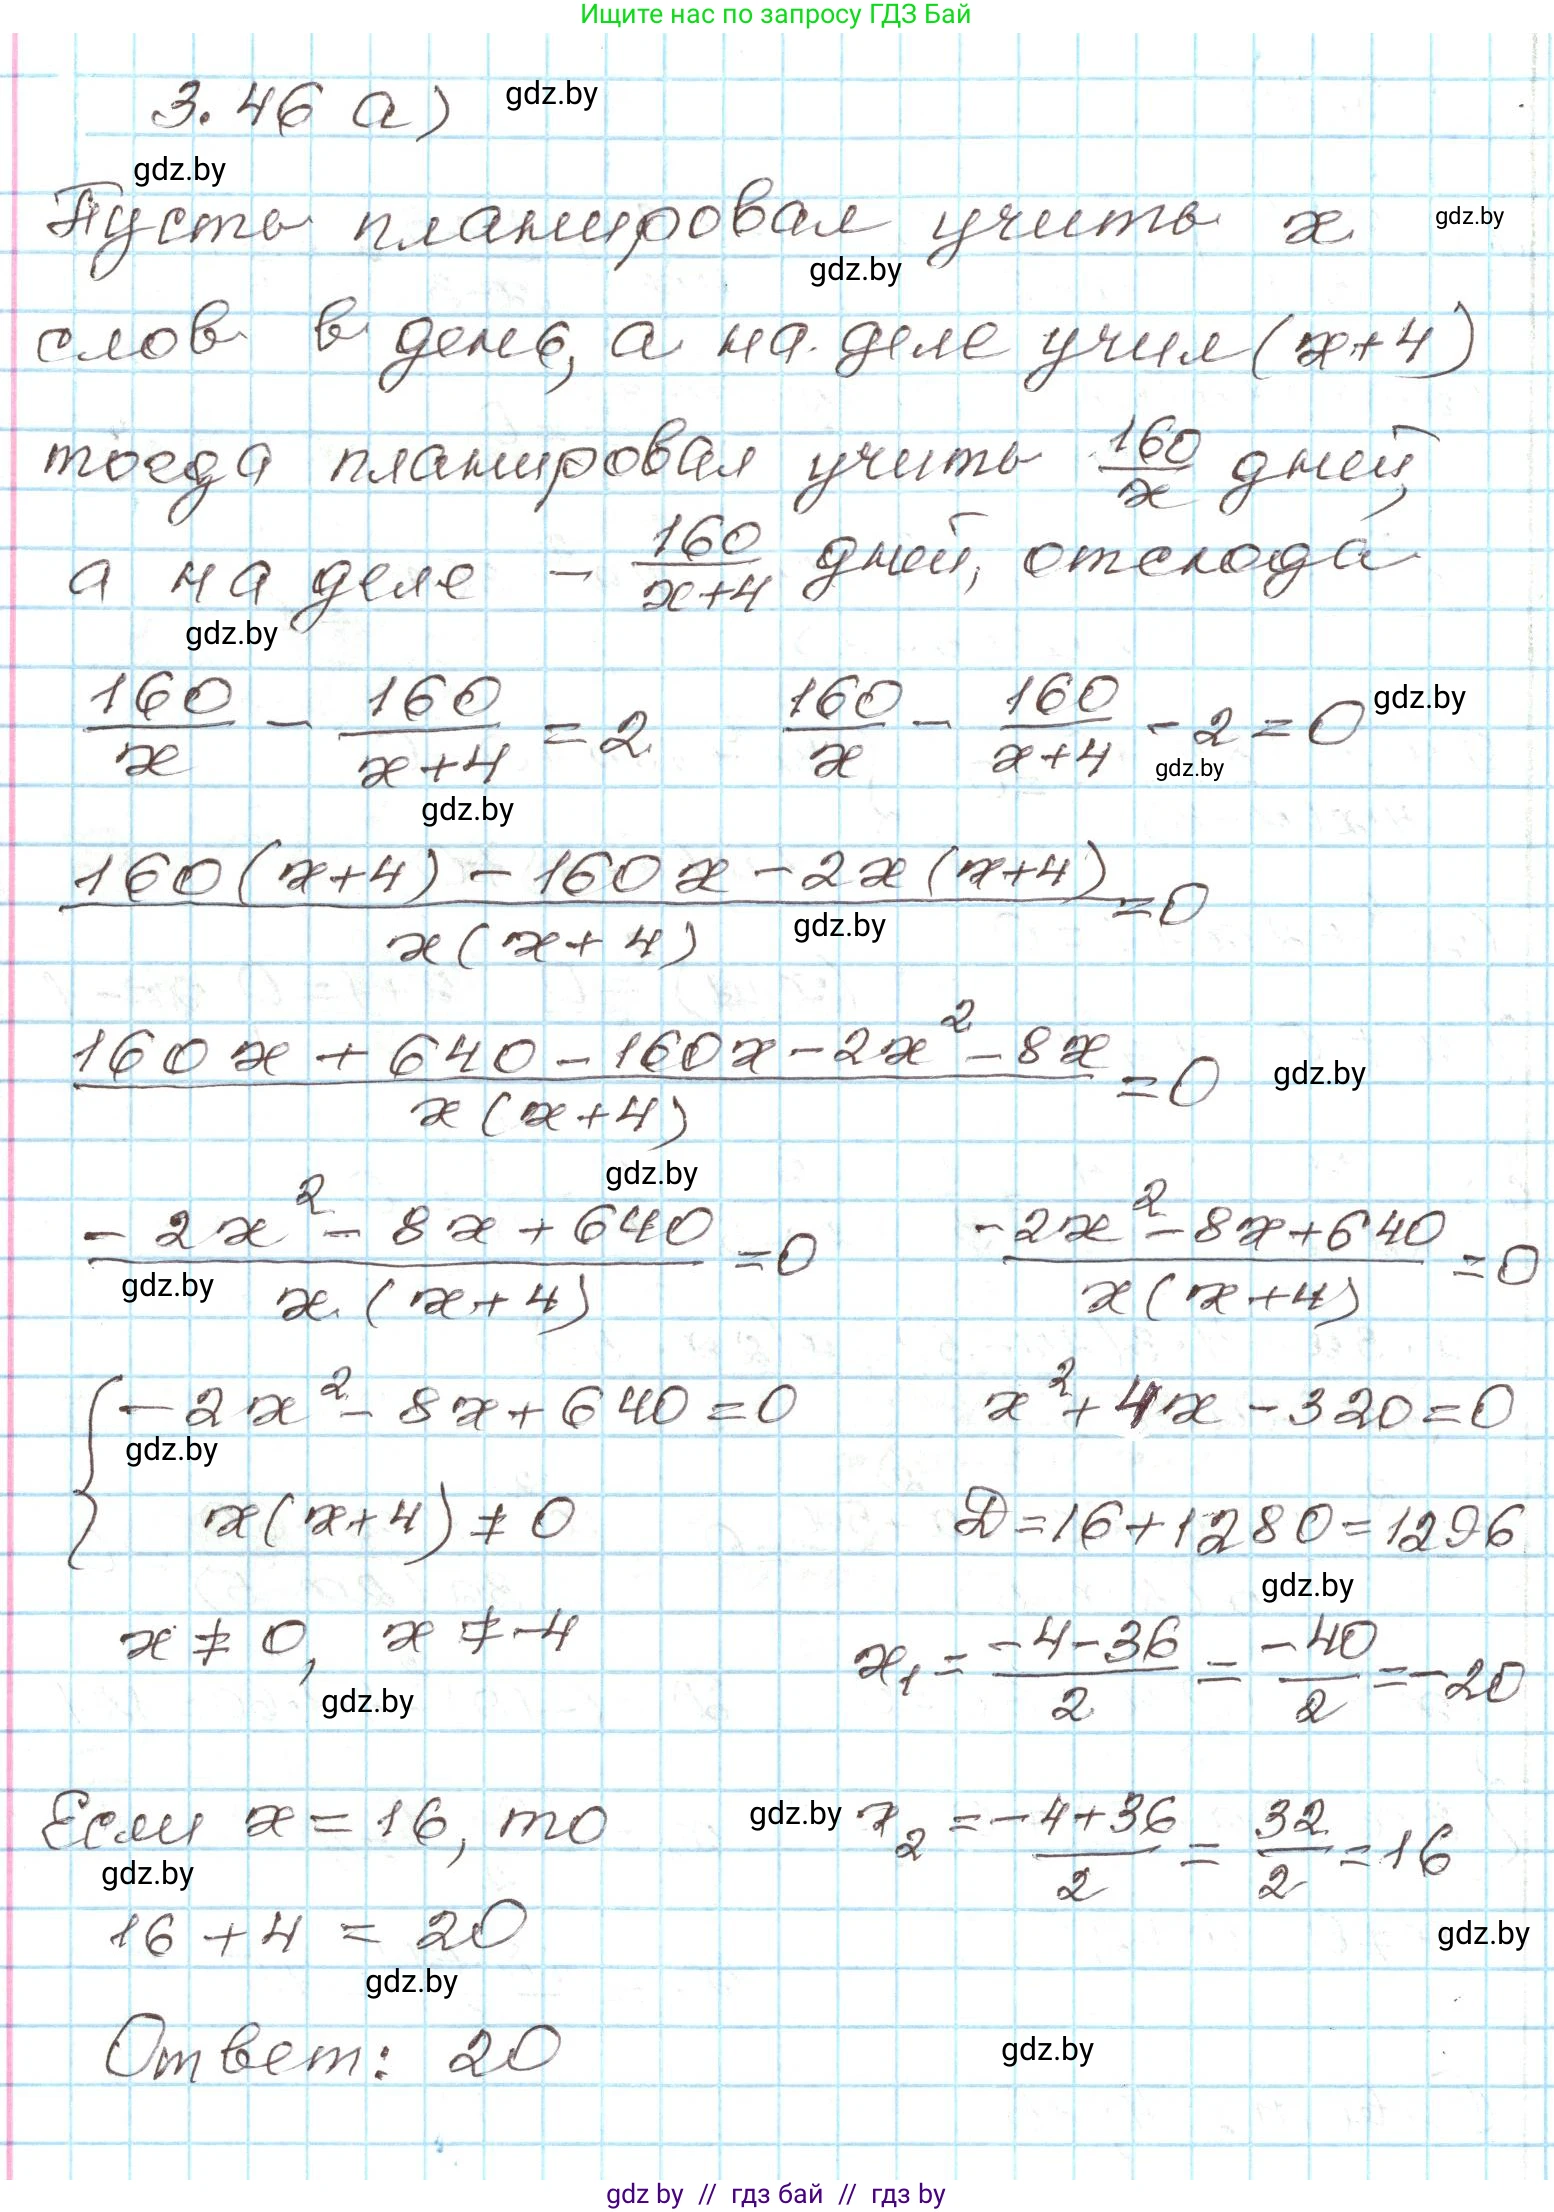 Ищите нас по запросу ГДЗ Бай
3.46 а) gdz.by
gdz.by
Пусть планировал учить x gdz.by
gdz.by
слов в день, а на деле учил (x+4)
тогда планировал учить 160/x дней,
а на деле – 160/(x+4) дней, отсюда
gdz.by
160/x - 160/(x+4) = 2   160/x - 160/(x+4) - 2 = 0 gdz.by
gdz.by
gdz.by
(160(x+4) - 160x - 2x(x+4))/(x(x+4)) = 0
gdz.by
(160x + 640 - 160x - 2x² - 8x)/(x(x+4)) = 0 gdz.by
gdz.by
(-2x² - 8x + 640)/(x(x+4)) = 0   (-2x² - 8x + 640)/(x(x+4)) = 0
gdz.by
{ -2x² - 8x + 640 = 0   x² + 4x - 320 = 0
gdz.by
x(x+4) ≠ 0   D = 16 + 1280 = 1296
gdz.by
x ≠ 0, x ≠ -4   x₁ = (-4-36)/2 = -40/2 = -20
gdz.by
Если x = 16, то gdz.by x₂ = (-4+36)/2 = 32/2 = 16
gdz.by
16 + 4 = 20 gdz.by
gdz.by
Ответ: 20 gdz.by
gdz by // гдз бай // гдз by